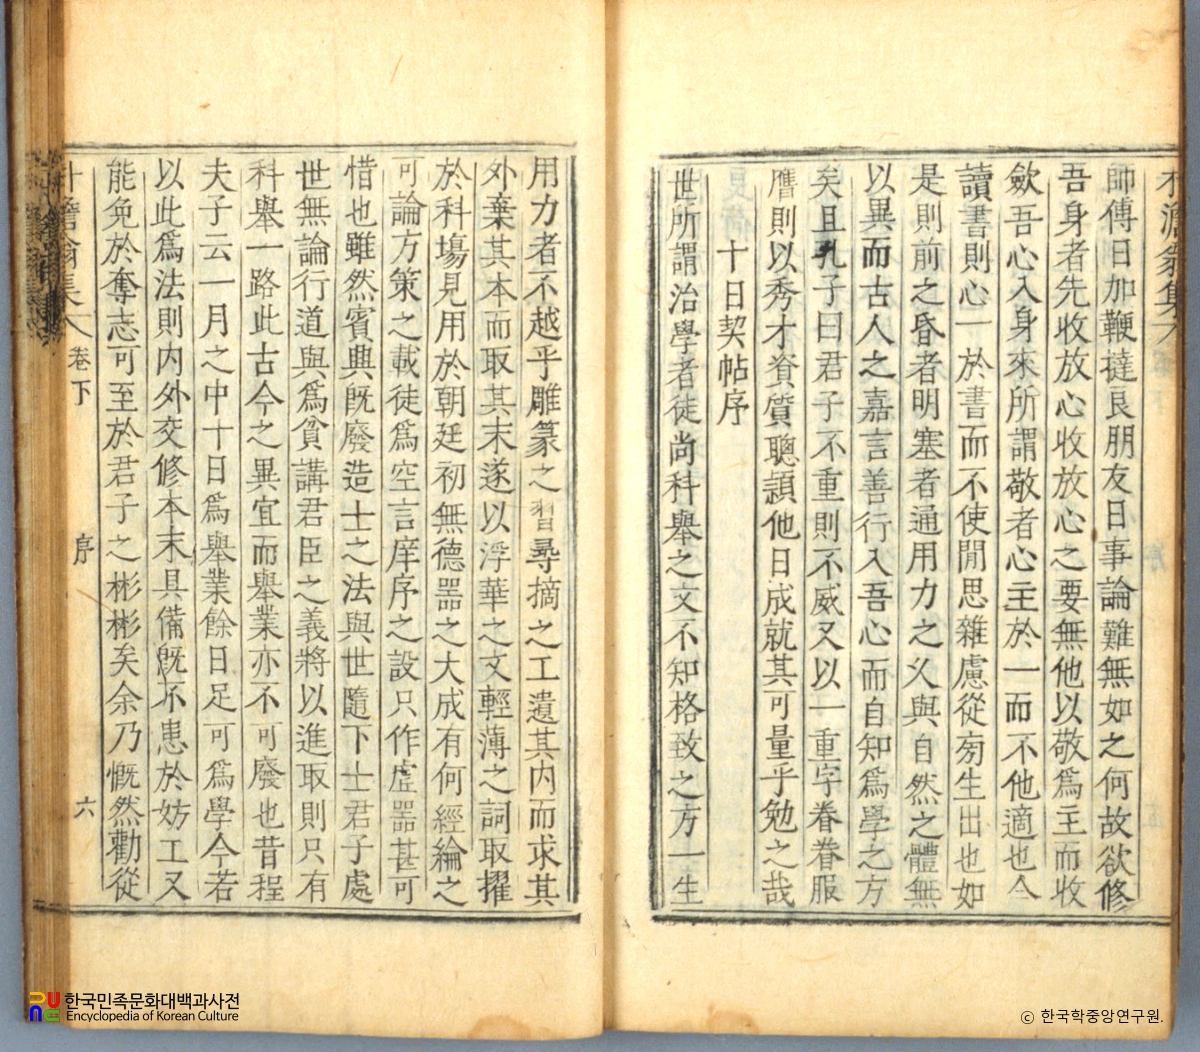 澹翁集
師傅日加鞭撻良朋友日事論難無如之何故欲修
吾身者先收放心收放心之要無他以敬爲主而收
歛吾心入身來所謂敬者心主於一而不他適也今
讀書則心一於書而不使閒思雜慮從旁生出也如
是則前之昏者明塞者通用力之久與自然之體無
以異而古人之嘉言善行入吾心而自知爲學之方
矣且孔子曰君子不重則不威又以一重字眷眷服
膺則以秀才資質聰頴他日成就其可量乎勉之哉
十日契帖序
世所謂治學者徒尚科舉之文不知格致之方一生
用力者不越乎雕篆之習尋摘之工遺其內而求其
外棄其本而取其末遂以浮華之文輕薄之詞取擢
於科場見用於朝廷初無德器之大成有何經綸之
可論方策之載徒爲空言庠序之設只作虛器甚可
惜也雖然賓典旣廢造士之法與世隨下士君子處
世無論行道與爲貧講君臣之義將以進取則只有
科舉一路此古今之異宜而舉業亦不可廢也昔程
夫子云一月之中十日爲舉業餘日足可爲學今若
以此爲法則內外交修本末具備旣不患於妨工又
能免於奪志可至於君子之彬彬矣余乃慨然勸從
澹翁集 卷下 序 六
한국민족문화대백과사전
Encyclopedia of Korean Culture
ⓒ 한국학중앙연구원.